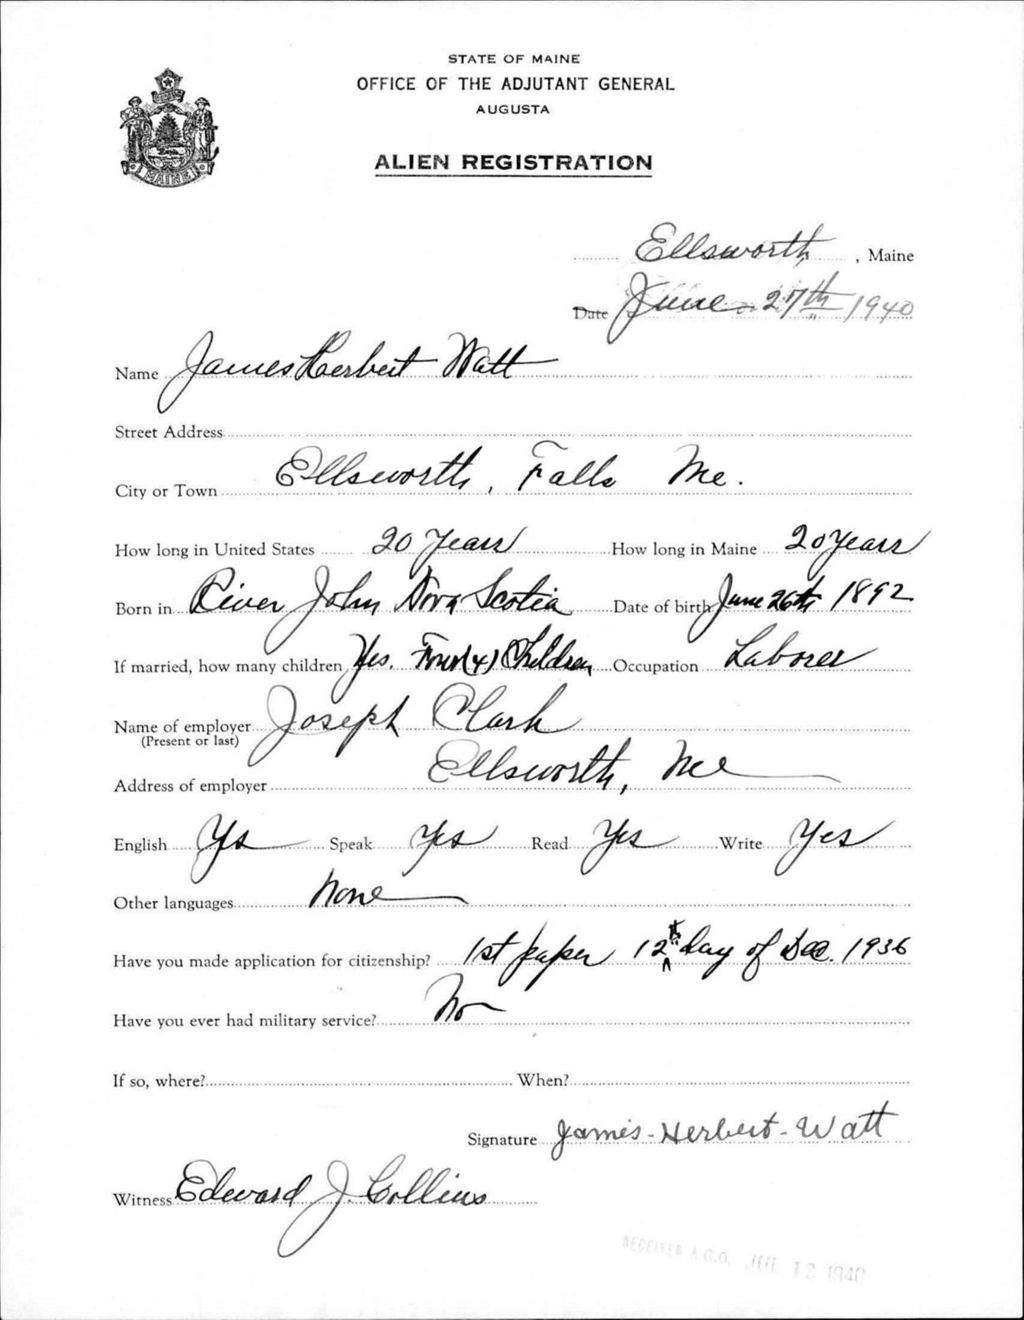 STATE OF MAINE
OFFICE OF THE ADJUTANT GENERAL
AUGUSTA
ALIEN REGISTRATION
MAINE
Ellsworth, Maine
Date June 27th 1940
Name James Herbert Watt
Street Address
City or Town Ellsworth, Falls Me.
How long in United States 20 Years How long in Maine 20 years
Born in River John Nova Scotia Date of birth June 26th 1892
If married, how many children Yes. Four (4) Children Occupation Laborer
Name of employer Joseph Clark
(Present or last)
Address of employer Ellsworth, Me
English Yes Speak Yes Read Yes Write Yes
Other languages None
Have you made application for citizenship? 1st paper 12th day of Dec. 1936
Have you ever had military service? No
If so, where? When?
Signature James-Herbert-Watt
Witness Edward J. Collins
RECEIVED A.G.O. JUL 12 1940